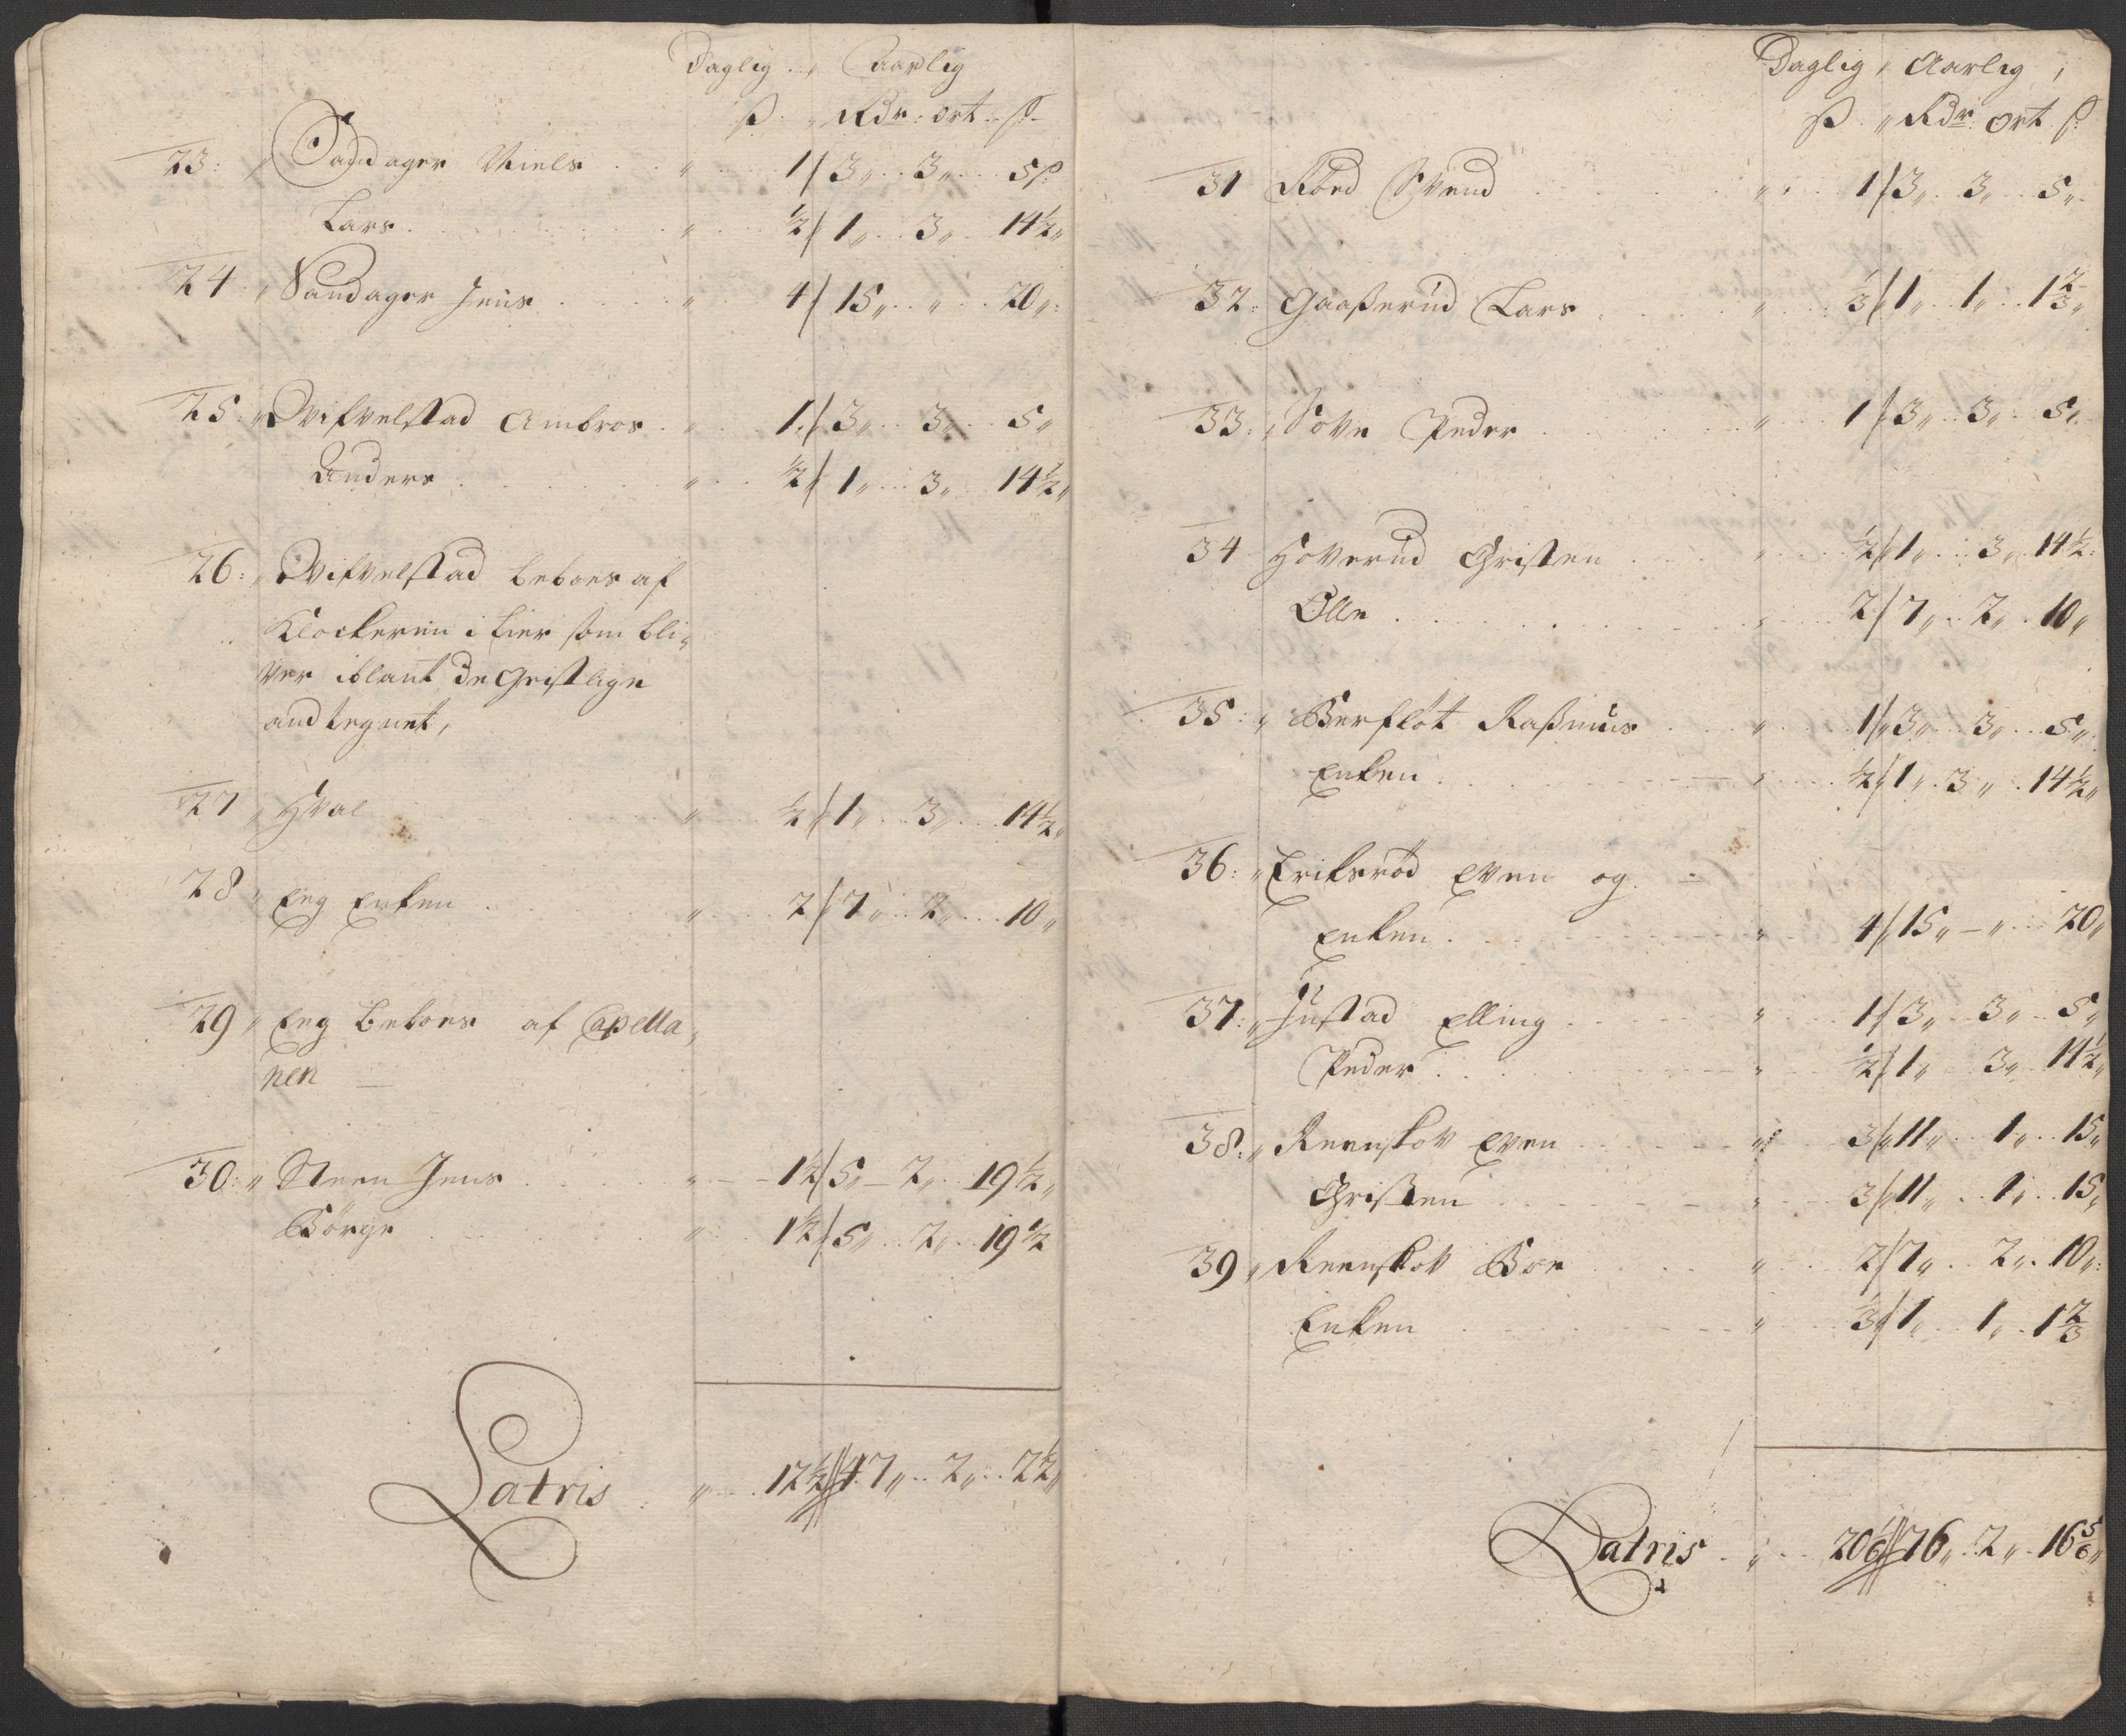 Daglig " Aarlig
ß " Rdr: ort. ß
23: " Sandager Niels " 1 / 3 " 3 " 5 ß
Lars " ½ / 1 " 3 " 14½ "
24 " Sandager Jens " 4 / 15 " " 20 "
25: " Vifvelstad Ambros " 1 / 3 " 3 " 5 "
Anders " ½ / 1 " 3 " 14½ "
26: " Vifvelstad beboes af
Klockeren i Lier som bli,
ver iblant de Geistlige
andtegnet,
27 " Hval " ½ / 1 " 3 " 14½ "
28 " Eeg Enken " 2 / 7 " 2 " 10 "
29 " Eeg beboes af Capella,
nen
30: " Steen Jens " 1½ / 5 " 2 " 19½ "
Börge " 1½ / 5 " 2 " 19½
Latris " 12½ // 47 " 2 " 2½ "
Daglig " Aarlig ,
ß " Rdr ort ß
31 Svend " 1 / 3 " 3 " 5 "
32: Gaaßerud Lars " ⅓ / 1 " 1 " 1⅔ "
33: " Peder " 1 / 3 " 3 " 5 "
34 Hoverud Christen " ½ / 1 " 3 " 14½ "
Olle " 2 / 7 " 2 " 10 "
35: " Berflöt Raßmus " 1 / 3 " 3 " 5 "
Enken " ½ / 1 " 3 " 14½ "
36: " Eriksröd Even og
Enken " 4 / 15 " " 20 "
37: " Justad Elling " 1 / 3 " 3 " 5 "
Peder " ½ / 1 " 3 " 14½ "
38: " Reenskov Even " 3 / 11 " 1 " 15 "
Christen " 3 / 11 " 1 " 15 "
39 " Reenskov Boe " 2 / 7 " 2 " 10 "
Enken " ⅓ / 1 " 1 " 1⅔
Latris " 20⅙ // 76 " 2 " 16⅚ "